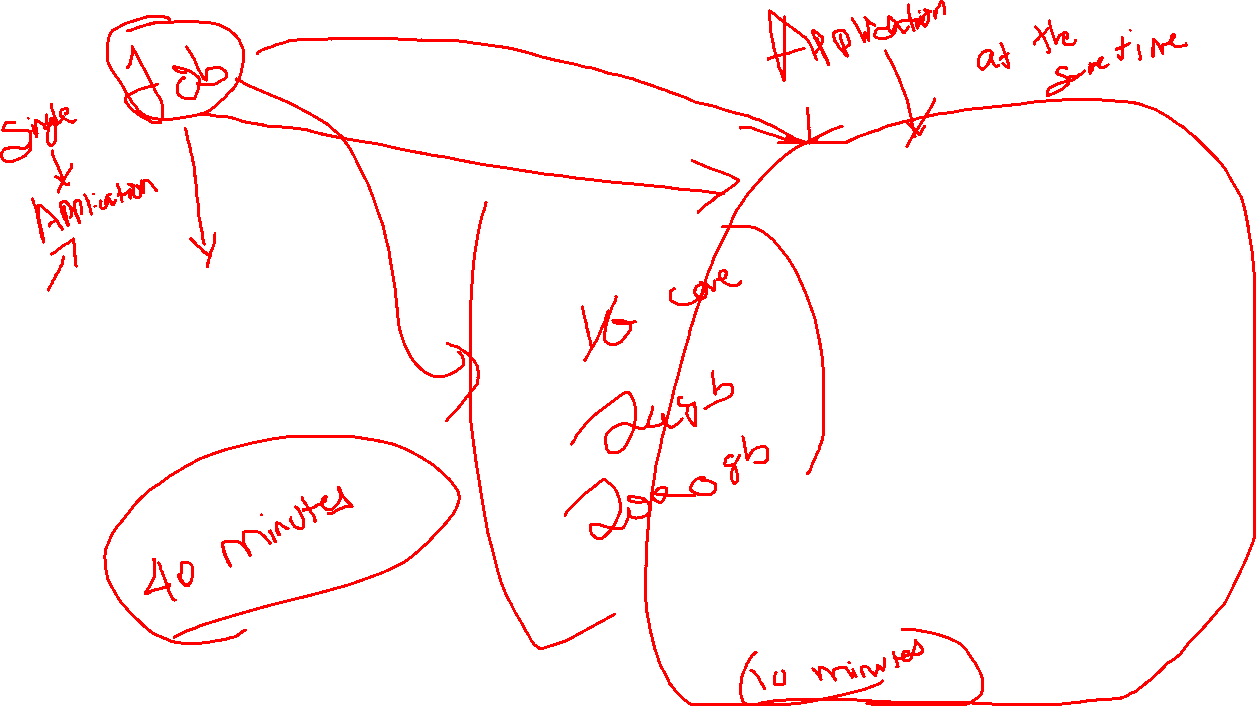 1 gb
Single
Application
Application
at the
same time
16 core
24gb
2000 gb
40 minutes
10 minutes